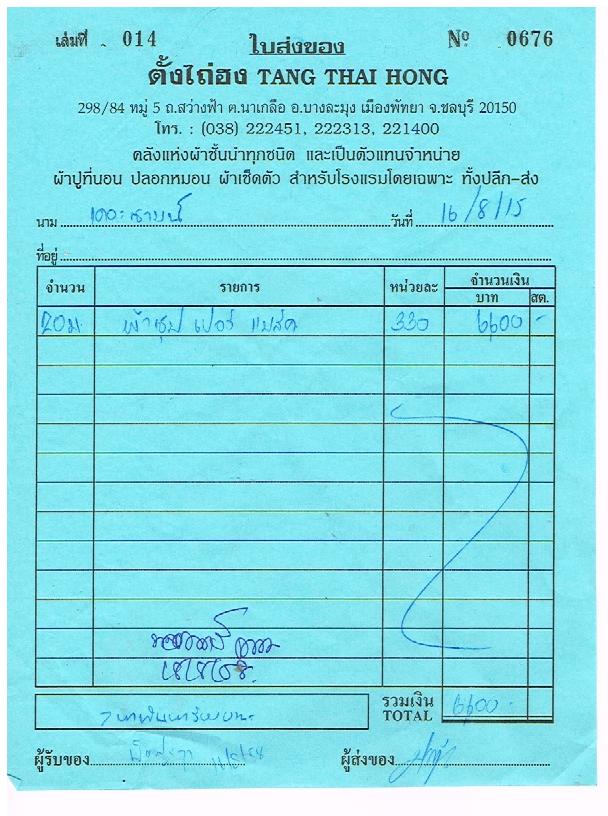 เล่มที่ 014 ใบส่งของ Nº 0676
ตั้งไถ่ฮง TANG THAI HONG
298/84 หมู่ 5 ถ.สว่างฟ้า ต.นาเกลือ อ.บางละมุง เมืองพัทยา จ.ชลบุรี 20150
โทร. : (038) 222451, 222313, 221400
คลังแห่งผ้าชั้นนำทุกชนิด และเป็นตัวแทนจำหน่าย
ผ้าปูที่นอน ปลอกหมอน ผ้าเช็ดตัว สำหรับโรงแรมโดยเฉพาะ ทั้งปลีก-ส่ง
นาม วันที่ 16/8/15
ที่อยู่
จำนวน รายการ หน่วยละ จำนวนเงิน
บาท สต.
20ม. ผ้าซุปเปอร์ 330 6600 -
รวมเงิน
TOTAL 6600 -
ผู้รับของ ผู้ส่งของ